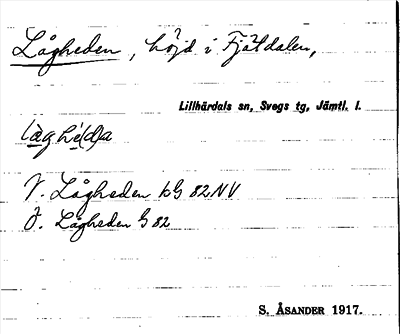 Lågheden, höjd i Fjätdalen,
Lillhärdals sn, Svegs tg, Jämtl. l.
lò̤g hé(d)a
V. Lågheden bG 82 NV
Ö. Lågheden G 82
S. ÅSANDER 1917.